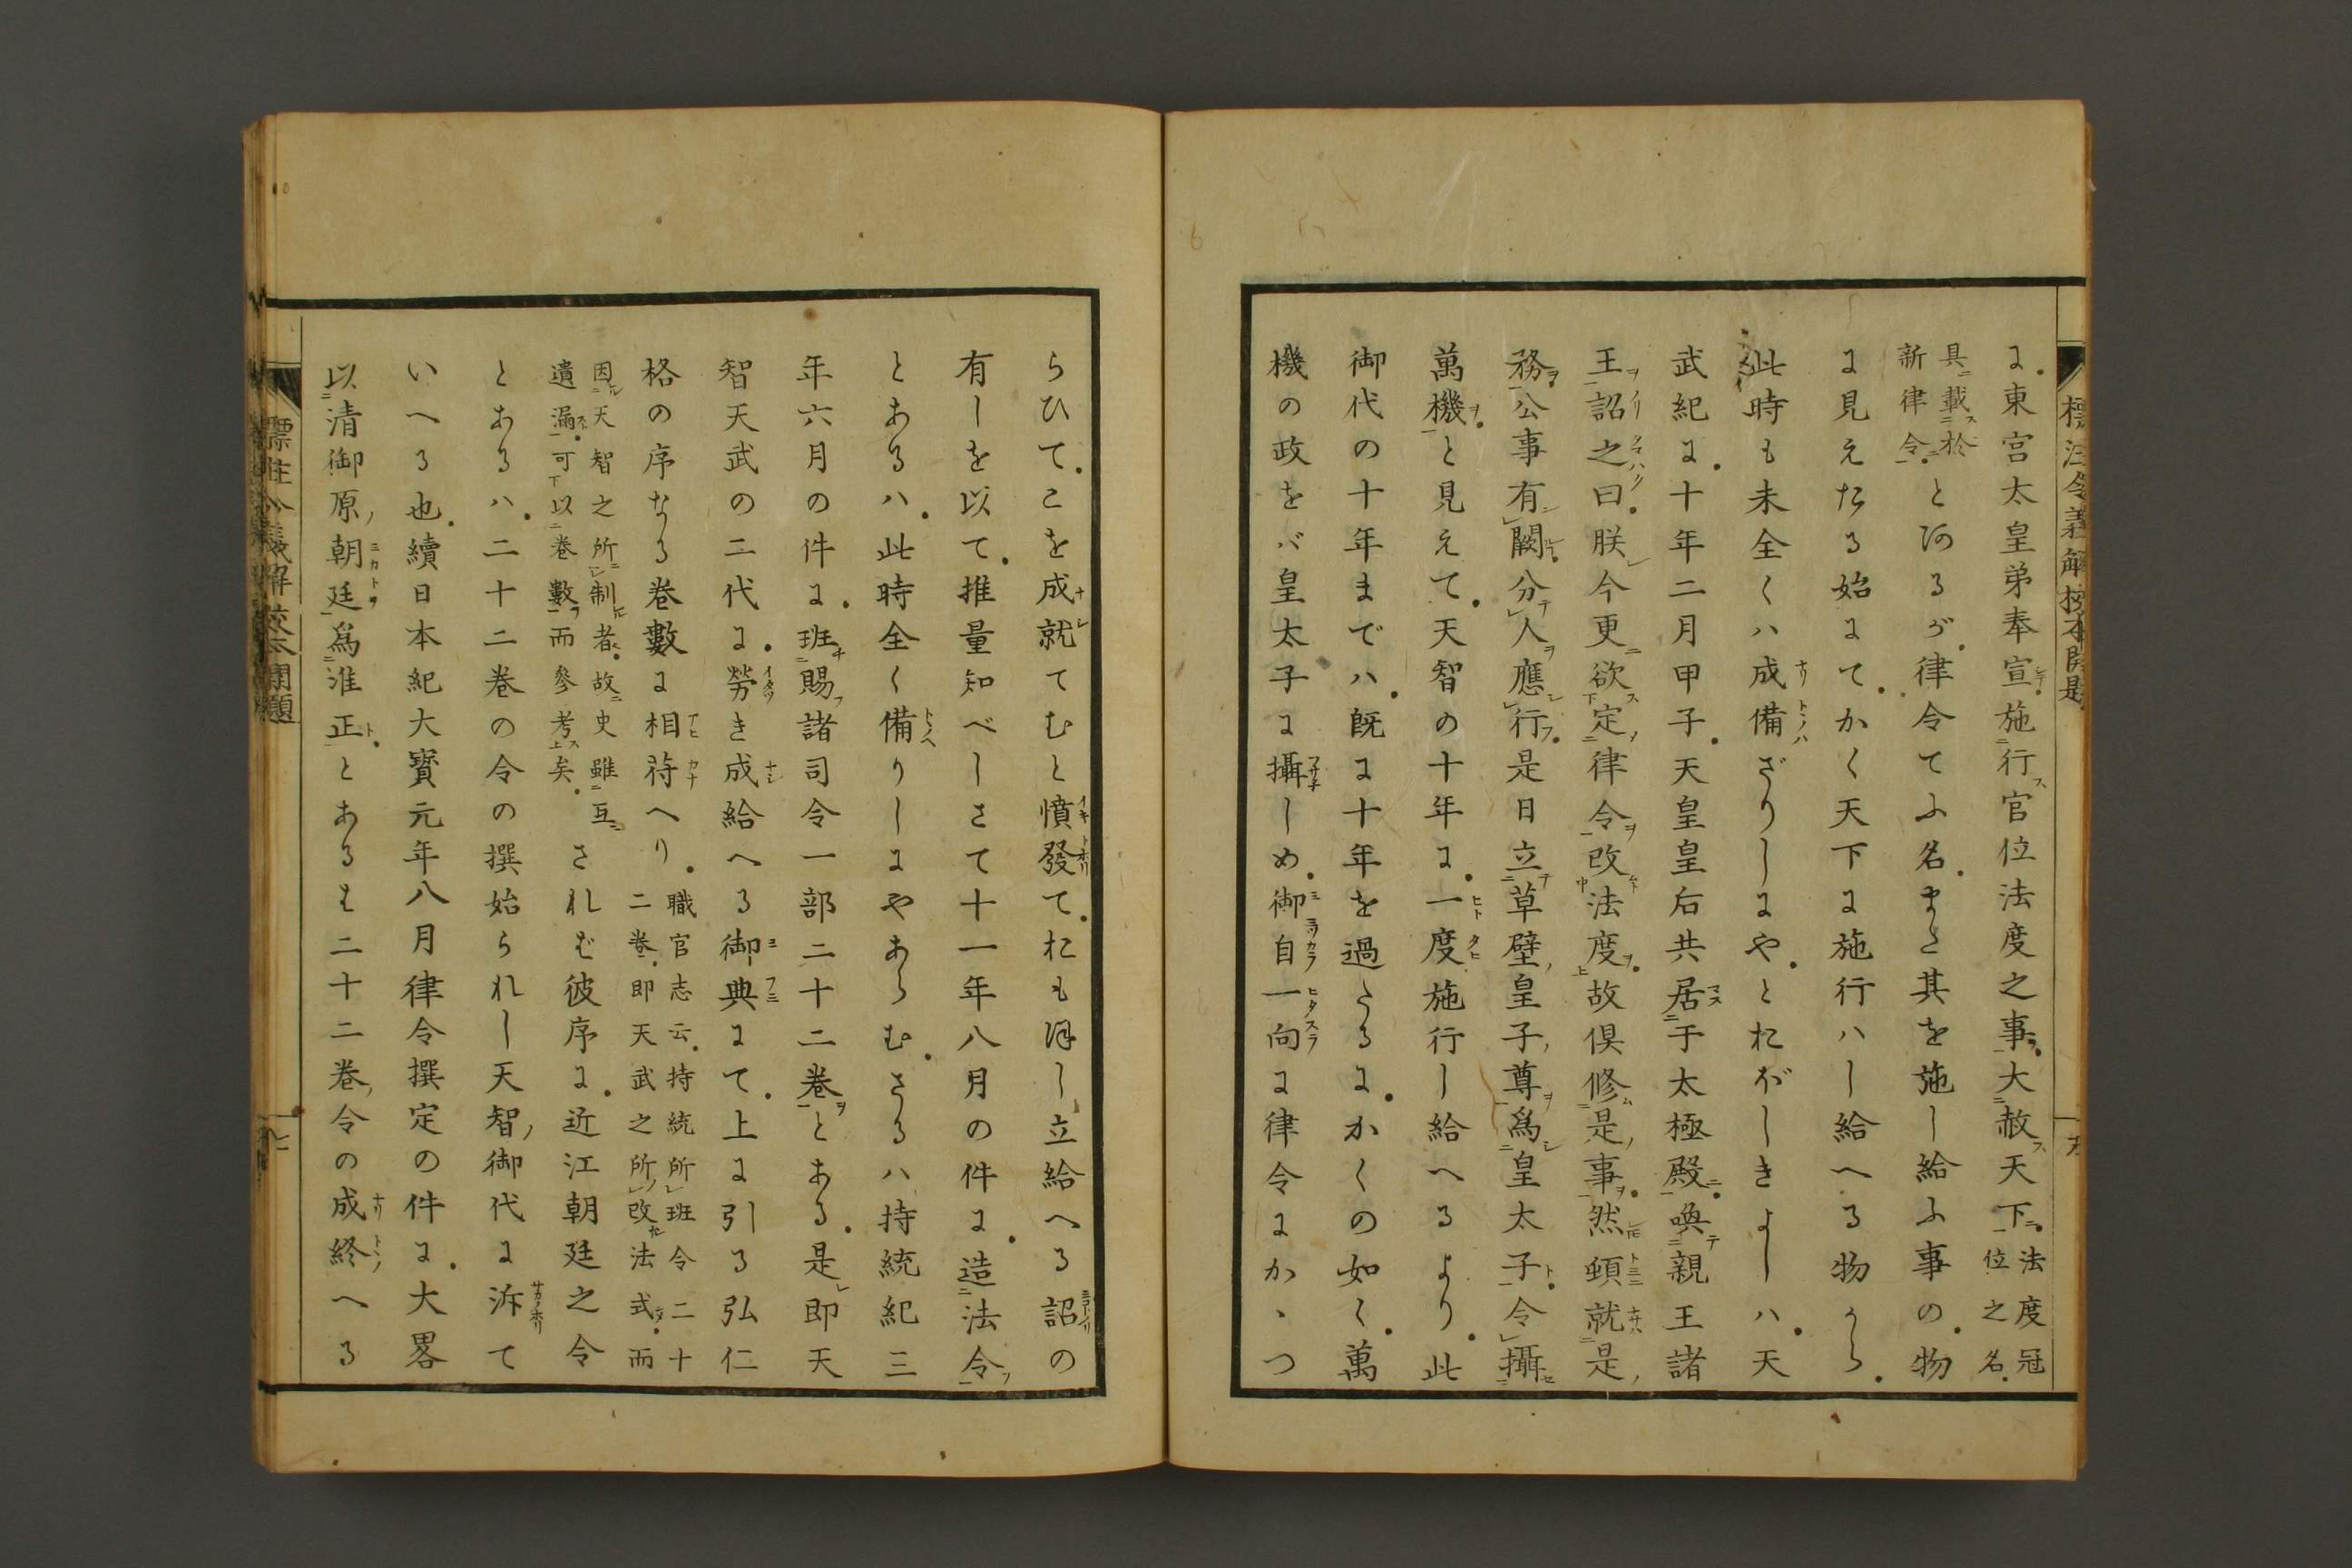 標注令義解校本開題
に東宮太皇弟奉宣施行官位法度之事大赦天下法度冠位之名
具載於新律令とあるが律令てふ名また其を施し給ふ事の物
に見えたる始にてかく天下に施行ハし給へる物から
此時も未全くハ成備ざりしにやとおぼしきよしハ天
武紀に十年二月甲子天皇皇后共居于太極殿喚親王諸
王詔之曰朕今更欲定律令改法度故俱修是事然頓就是
務公事有闕分人應行是日立草壁皇子尊爲皇太子令攝
萬機と見えて天智の十年に一度施行し給へるより此
御代の十年までハ既に十年を過たるにかくの如く萬
機の政をバ皇太子に攝しめ御自一向に律令にかゝつ
らひてこを成就てむと憤發ておもほし立給へる詔の
有しを以て推量知べしさて十一年八月の件に造法令
とあるハ此時全く備りしにやあらむさるハ持統紀三
年六月の件に班賜諸司令一部二十二卷とある是即天
智天武の二代に勞き成給へる御典にて上に引る弘仁
格の序なる卷數に相符へり職官志云持統所班令二十二卷即天武之所改法式而
因天智之所制者故史雖互遺漏可以卷數而參考矣されば彼序に近江朝廷之令
とあるハ二十二卷の令の撰始られし天智御代に泝て
いへる也續日本紀大寶元年八月律令撰定の件に大畧
以清御原朝廷爲淮正とあるも二十二卷令の成終へる
標注令義解校本開題